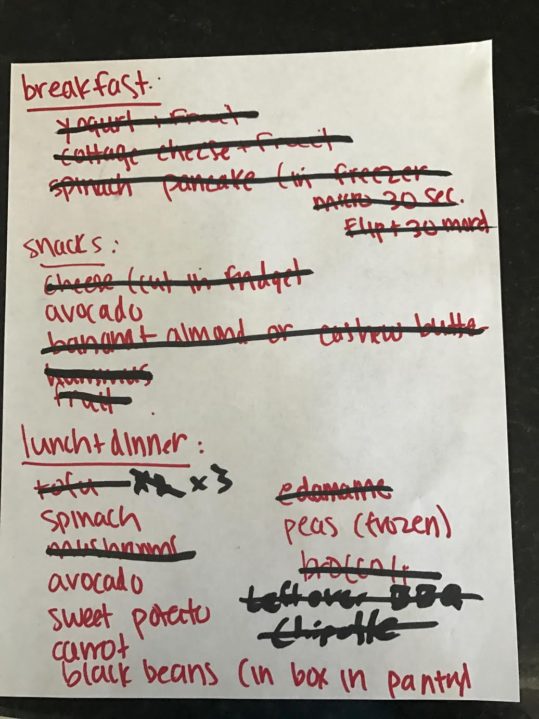 breakfast:
yogurt + fruit
cottage cheese + fruit
spinach pancake (in freezer
micro 30 sec.
Flip + 30 more)
snacks:
cheese (cut in fridge)
avocado
banana + almond or cashew butte
hummus
fruit
lunch + dinner:
tofu x2 x3
spinach
mushrooms
avocado
sweet potato
carrot
black beans (in box in pantry)
edamame
peas (frozen)
broccoli
Leftover BBQ
Chipotle